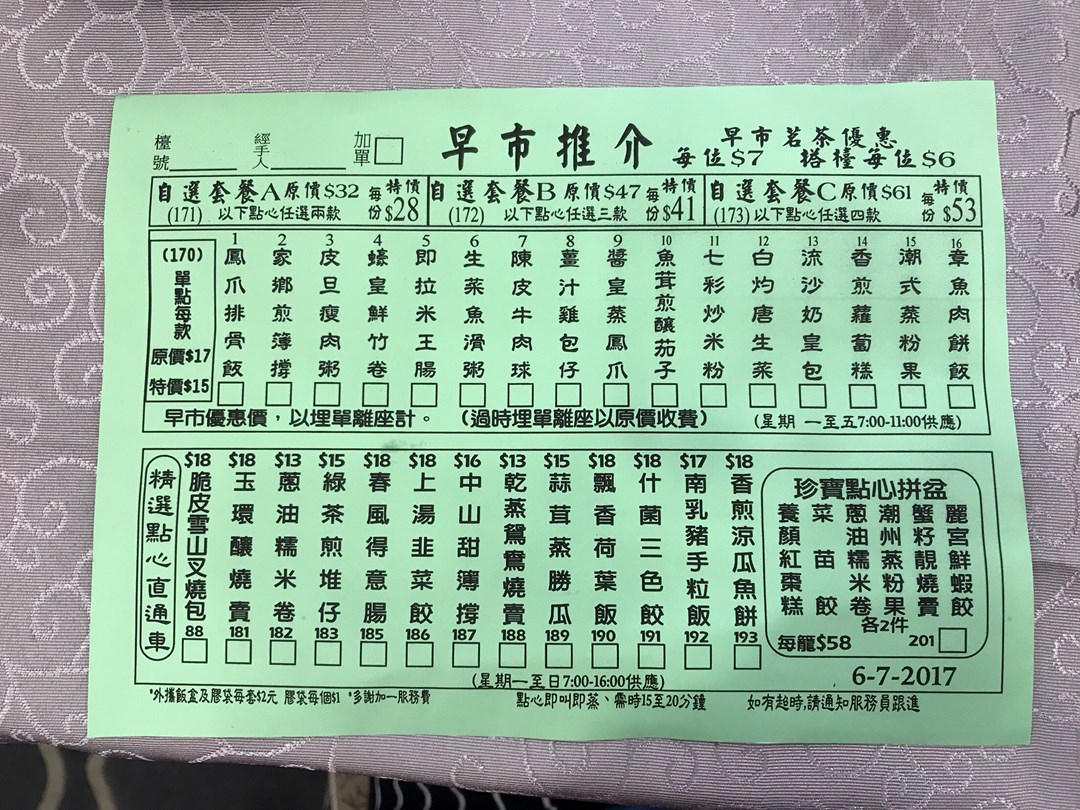 檯號______ 經手人______ 加單□ 早市推介 早市茗茶優惠
每位$7 搭檯每位$6
自選套餐A原價$32 每份特價$28
(171) 以下點心任選兩款
自選套餐B原價$47 每份特價$41
(172) 以下點心任選三款
自選套餐C原價$61 每份特價$53
(173) 以下點心任選四款
(170)
單點每款
原價$17
特價$15
1 鳳爪排骨飯
2 家鄉煎簿撐
3 皮旦瘦肉粥
4 蠔皇鮮竹卷
5 即拉米王腸
6 生菜魚滑粥
7 陳皮牛肉球
8 薑汁雞包仔
9 醬皇蒸鳳爪
10 魚茸煎釀茄子
11 七彩炒米粉
12 白灼唐生菜
13 流沙奶皇包
14 香煎蘿蔔糕
15 潮式蒸粉果
16 章魚肉餅飯
早市優惠價，以埋單離座計。 (過時埋單離座以原價收費) (星期一至五7:00-11:00供應)
精選點心直通車
$18 脆皮雪山叉燒包 88
$18 玉環釀燒賣 181
$13 蔥油糯米卷 182
$15 綠茶煎堆仔 183
$18 春風得意腸 185
$18 上湯韭菜餃 186
$16 中山甜簿撐 187
$13 乾蒸鴛鴦燒賣 188
$15 蒜茸蒸勝瓜 189
$18 飄香荷葉飯 190
$18 什菌三色餃 191
$17 南乳豬手粒飯 192
$18 香煎涼瓜魚餅 193
珍寶點心拼盆
養顏紅棗糕
菜苗餃
蔥油糯米卷
潮州蒸粉果
蟹籽靚燒賣
麗宮鮮蝦餃
各2件
每籠$58 201
(星期一至日7:00-16:00供應)
6-7-2017
*外攜飯盒及膠袋每套$2元 膠袋每個$1 *多謝加一服務費 點心即叫即蒸、需時15至20分鐘 如有超時,請通知服務員跟進